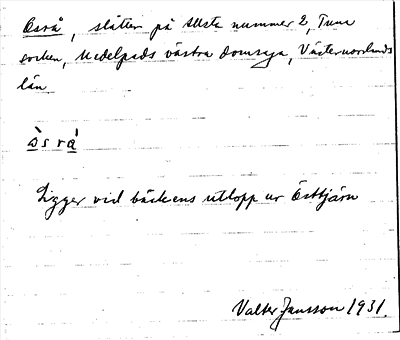 Åsrå, slåtter på Allsta nummer 2, Tuna
socken, Medelpads västra domsaga, Västernorrlands
län
å̀s rǻ
Ligger vid bäckens utlopp ur Östtjärn
Valter Jansson 1931.